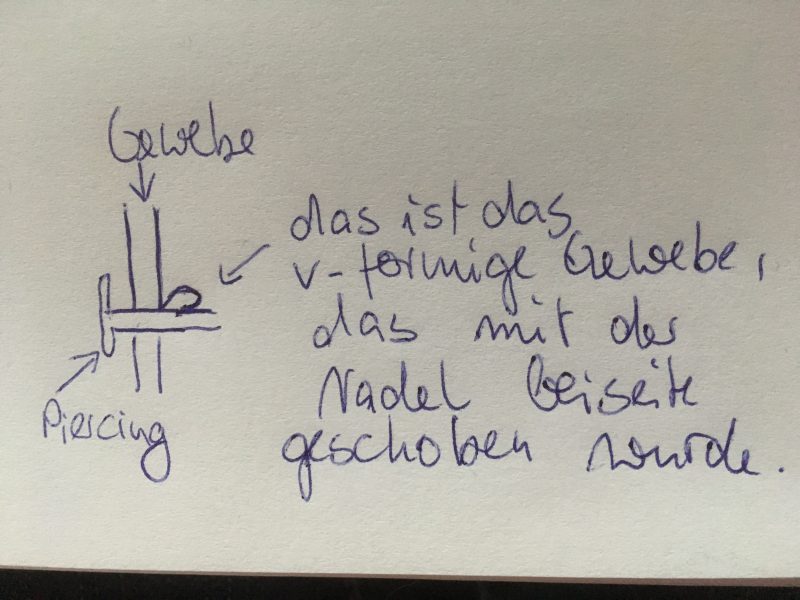 Gewebe
das ist das
v-förmige Gewebe,
das mit der
Nadel beiseite
geschoben wurde.
Piercing